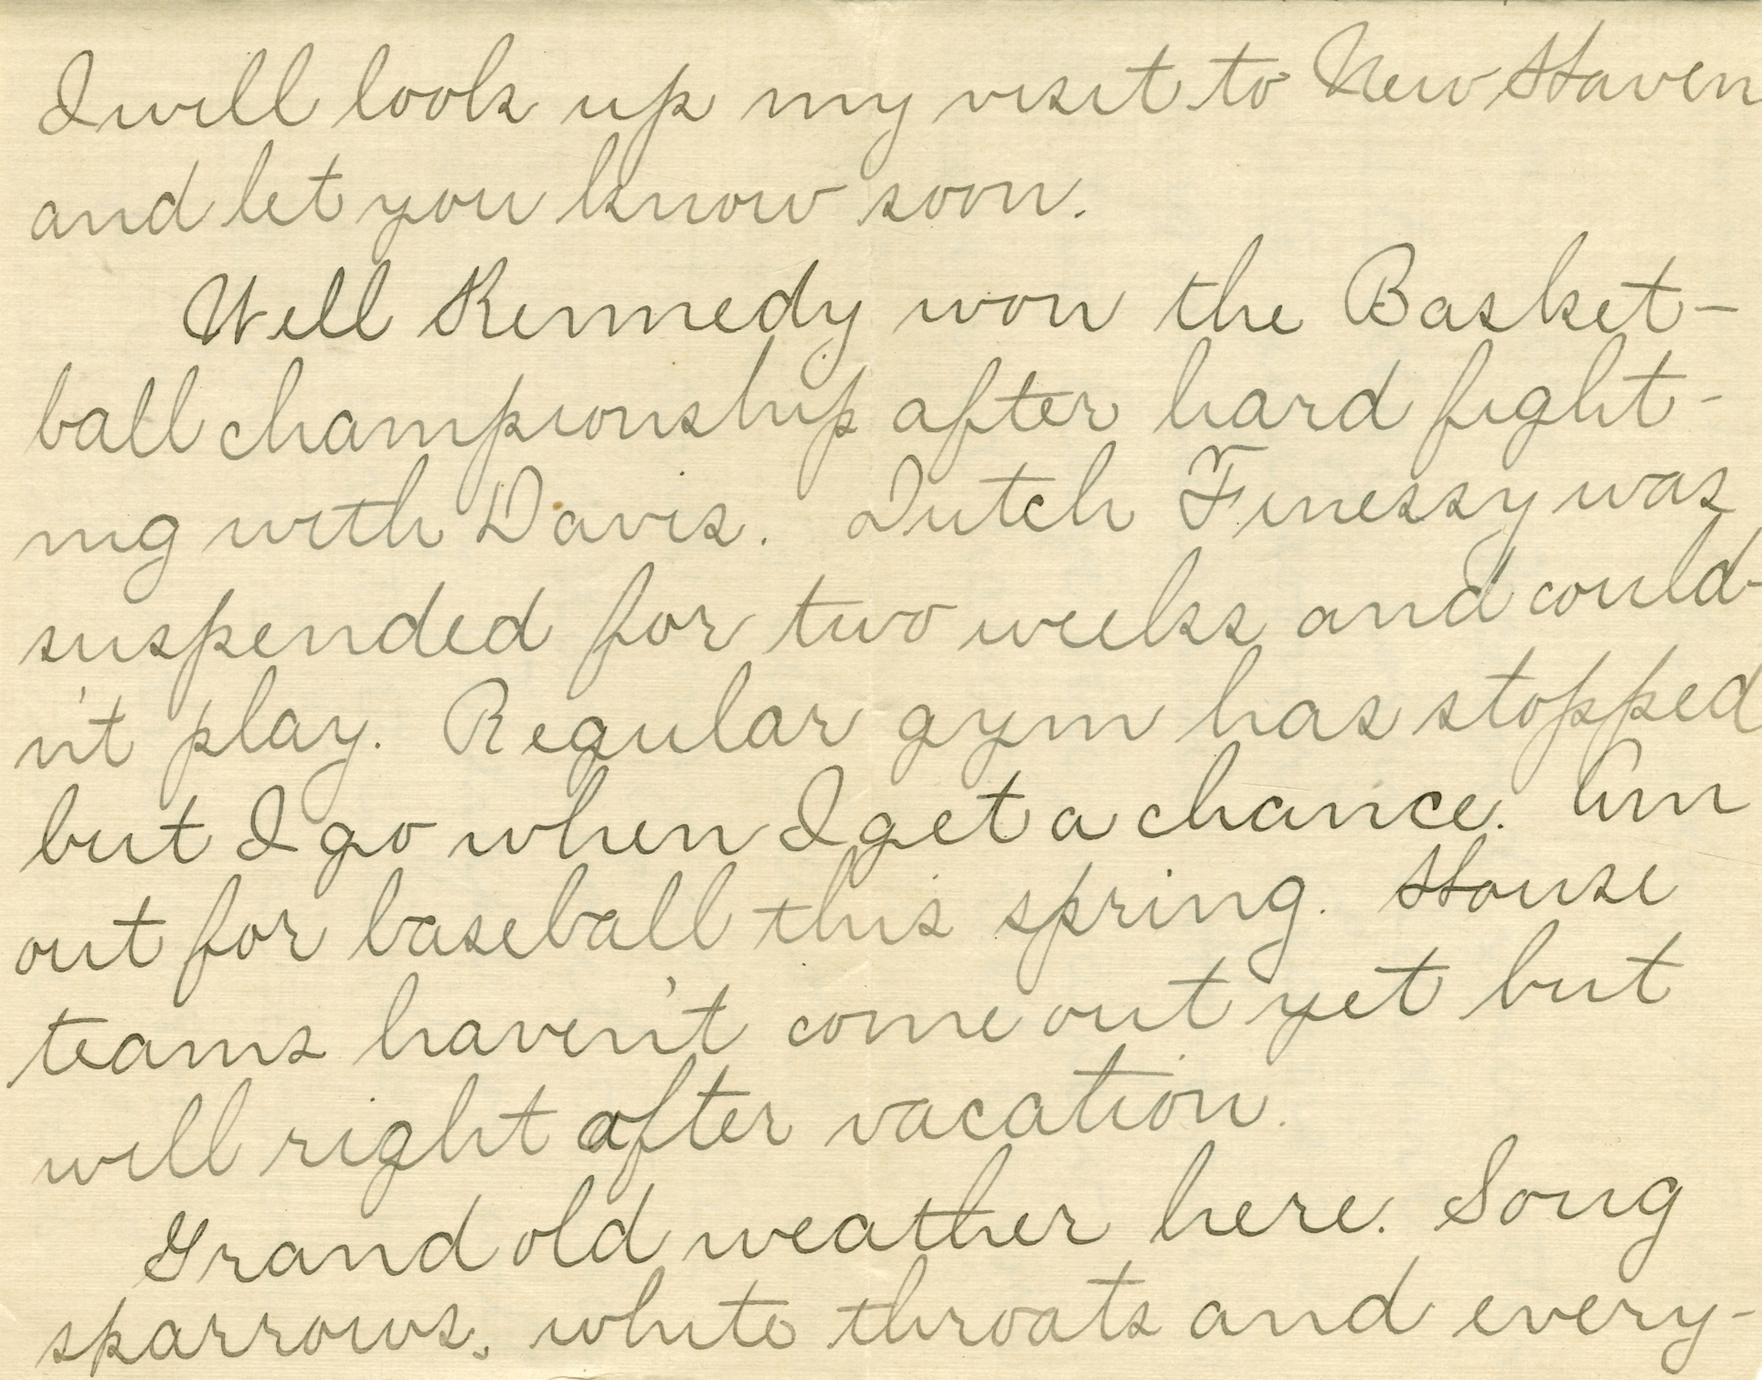 I will look up my visit to New Haven
and let you know soon.
Well Kennedy won the Basket-
ball championship after hard fight-
ing with Davis. Dutch Finessy was
suspended for two weeks and could-
n't play. Regular gym has stopped
but I go when I get a chance. Am
out for baseball this spring. House
teams haven't come out yet but
will right after vacation.
Grand old weather here. Song
sparrows, white throats and every-